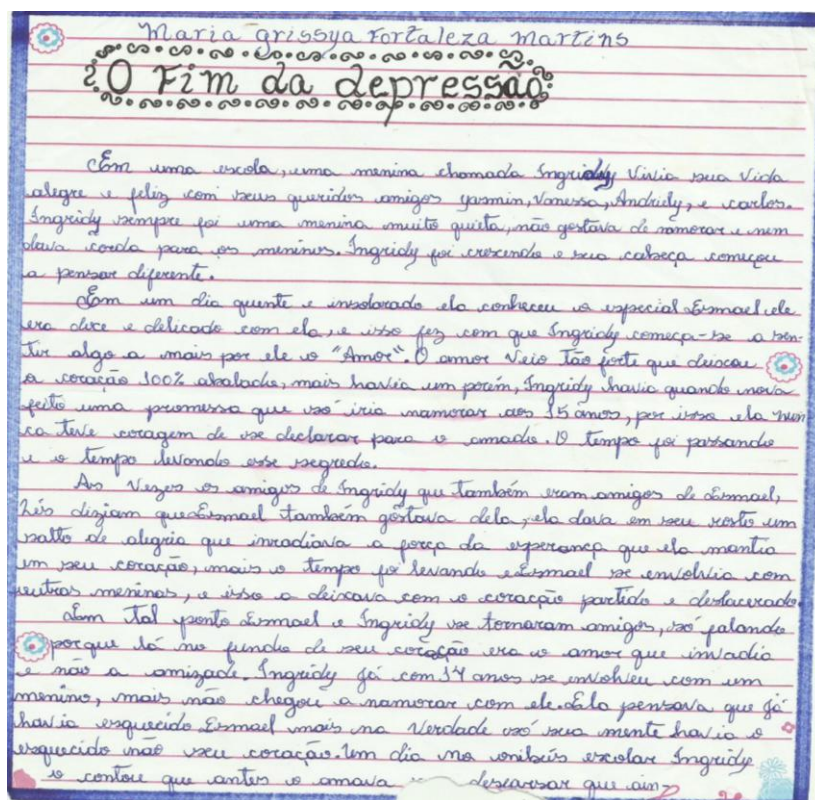 Maria grissya Fortaleza Martins
O Fim da depressão
Em uma escola, uma menina chamada Ingridy Vivia sua Vida
alegre e feliz com seus queridos amigos yasmin, Vanessa, Andriely, e carlos.
Ingridy sempre foi uma menina muito quieta, não gostava de namorar e nem
dava corda para os meninos. Ingridy foi crescendo e sua cabeça começou
a pensar diferente.
Em um dia quente e insolarado ela conheceu o especial Esmael, ele
era doce e delicado com ela, e isso fez com que Ingridy começa-se a sen-
tir algo a mais por ele o "Amor". O amor Veio tão forte que deixou
o coração 100% abalado, mais havia um porém, Ingridy havia quando nova
feito uma promessa que só iria namorar aos 15 anos, por isso ela nun
ca teve coragem de se declarar para o amado. O tempo foi passando
e o tempo levando esse segredo.
As Vezes os amigos de Ingridy que também eram amigos de Esmael,
lês diziam que Esmael também gostava dela, ela dava em seu rosto um
salto de alegria que inradiava a força da esperança que ela mantia
em seu coração, mais o tempo foi levando e Esmael se envolvia com
outras meninas, e isso a deixava com o coração partido e deslacerado.
Em tal ponto Esmael e Ingridy se tornaram amigos, só falando
porque lá no fundo de seu coração era o amor que invadia
e não a amizade. Ingridy já com 14 anos se envolveu com um
menino, mais não chegou a namorar com ele. Ela pensava que já
havia esquecido Esmael mais na Verdade só sua mente havia o
esquecido não seu coração. Um dia no onibus escolar Ingridy
o contou que antes o amava descarsar que ain